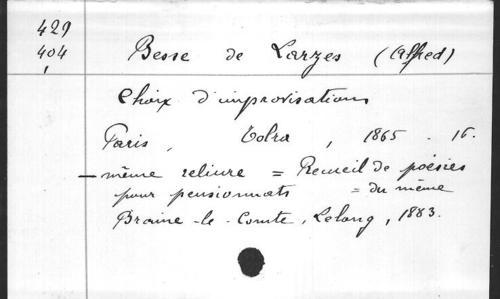 429
404
Besse de Larzes (Alfred)
Choix d'improvisations
Paris, Tolra, 1865. 16.
— même reliure = Recueil de poésies
pour pensionnats = du même
Braine-le-Comte, Lelong, 1883.